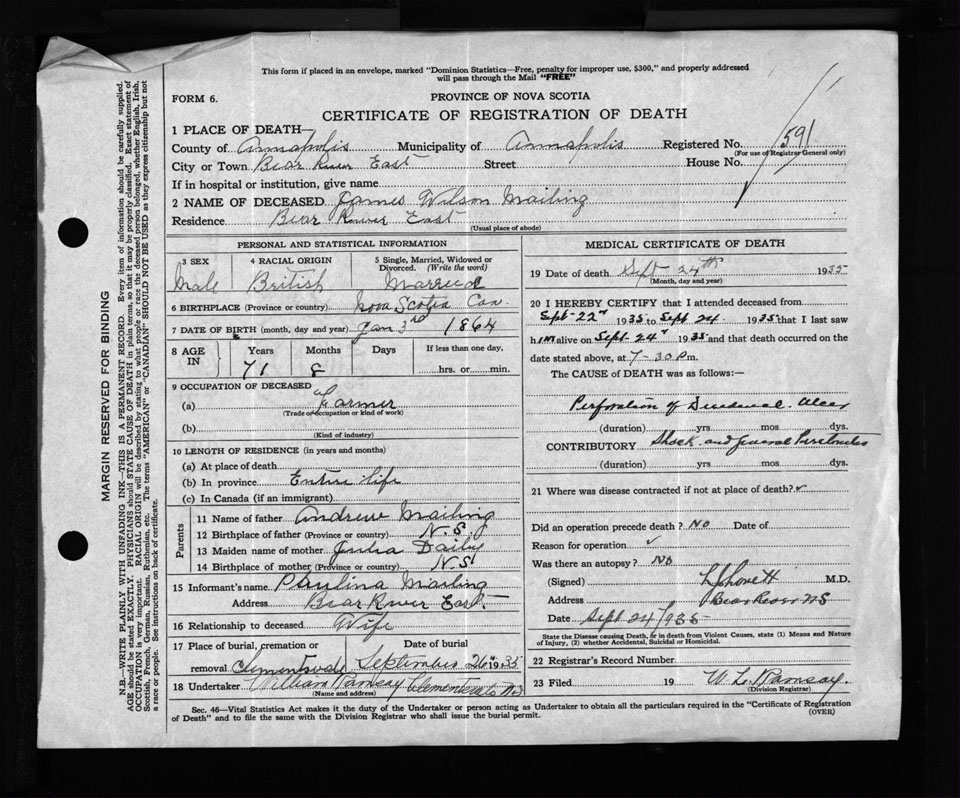 This form if placed in an envelope, marked "Dominion Statistics—Free, penalty for improper use, $300," and properly addressed
will pass through the Mail "FREE"
FORM 6.
PROVINCE OF NOVA SCOTIA
CERTIFICATE OF REGISTRATION OF DEATH
1 PLACE OF DEATH—
County of Annapolis Municipality of Annapolis Registered No. 591
(For use of Registrar General only)
City or Town Bear River East Street House No.
If in hospital or institution, give name
2 NAME OF DECEASED James Wilson Mailing
Residence Bear River East
(Usual place of abode)
PERSONAL AND STATISTICAL INFORMATION
3 SEX 4 RACIAL ORIGIN 5 Single, Married, Widowed or Divorced. (Write the word)
Male British Married
6 BIRTHPLACE (Province or country) Nova Scotia Can.
7 DATE OF BIRTH (month, day and year) Jan 3rd 1864
8 AGE IN Years Months Days If less than one day,
71 8 hrs. or min.
9 OCCUPATION OF DECEASED
(a) Farmer
(Trade or occupation or kind of work)
(b)
(Kind of industry)
10 LENGTH OF RESIDENCE (in years and months)
(a) At place of death
(b) In province Entire life
(c) In Canada (if an immigrant)
Parents
11 Name of father Andrew Mailing
12 Birthplace of father (Province or country) N.S.
13 Maiden name of mother Julia Daily
14 Birthplace of mother (Province or country) N.S
15 Informant's name Paulina Mailing
Address Bear River East
16 Relationship to deceased Wife
17 Place of burial, cremation or Date of burial
removal Clementsvale September 26 1935
18 Undertaker William Ramsay
(Name and address)
MEDICAL CERTIFICATE OF DEATH
19 Date of death Sept 24th 1935
(Month, day and year)
20 I HEREBY CERTIFY that I attended deceased from
Sept 22" 1935 to Sept 24 1935 that I last saw
him alive on Sept 24" 1935 and that death occurred on the
date stated above, at 7-30 P.m.
The CAUSE of DEATH was as follows:—
Perforation of Duodenal Ulcer
(duration) yrs mos dys.
CONTRIBUTORY Shock and general Peritonitis
(duration) yrs. mos. dys.
21 Where was disease contracted if not at place of death?
Did an operation precede death? No Date of
Reason for operation
Was there an autopsy? No
(Signed) M.D.
Address Bear River NS
Date Sept 24/1935
State the Disease causing Death, or in death from Violent Causes, state (1) Means and Nature
of Injury, (2) whether Accidental, Suicidal or Homicidal.
22 Registrar's Record Number
23 Filed 19 W. L. Ramsay.
(Division Registrar)
Sec. 46—Vital Statistics Act makes it the duty of the Undertaker or person acting as Undertaker to obtain all the particulars required in the "Certificate of Registration
of Death" and to file the same with the Division Registrar who shall issue the burial permit. (OVER)
MARGIN RESERVED FOR BINDING
N.B.—WRITE PLAINLY WITH UNFADING INK—THIS IS A PERMANENT RECORD. Every item of information should be carefully supplied.
AGE should be stated EXACTLY. PHYSICIANS should STATE CAUSE OF DEATH in plain terms, so that it may be properly classified. Exact statement of
OCCUPATION is very important. RACIAL ORIGIN will be described by stating to what people or race the deceased person belonged, whether English, Irish,
Scottish, French, German, Russian, Ruthenian, etc. The terms "AMERICAN" or "CANADIAN" SHOULD NOT BE USED as they express citizenship but not
a race or people. See instructions on back of certificate.